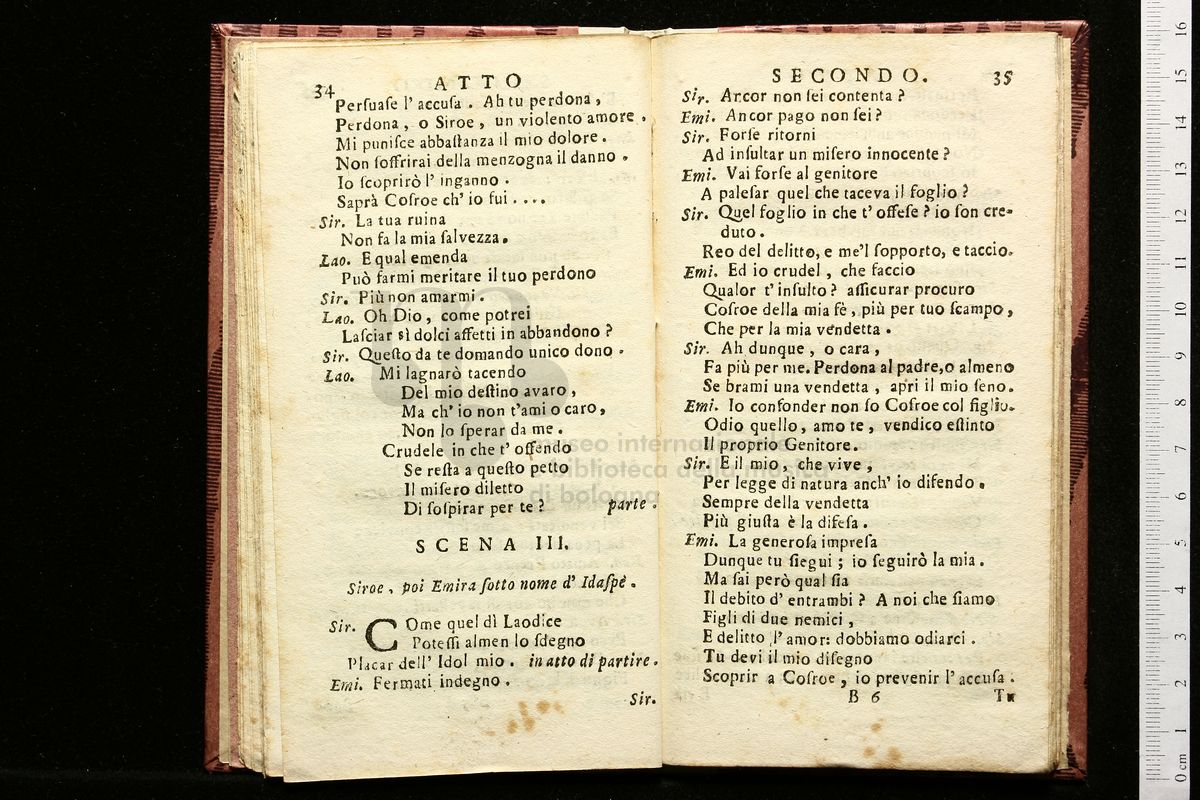 34
ATTO
Perſuaſe l' accuſa. Ah tu perdona,
Perdona, o Siroe, un violento amore.
Mi puniſce abbaſtanza il mio dolore.
Non ſoffrirai della menzogna il danno.
Io ſcoprirò l' inganno.
Saprà Coſroe ch' io fui....
Sir. La tua ruina
Non fa la mia ſalvezza.
Lao. E qual emenda
Può farmi meritare il tuo perdono
Sir. Più non amarmi.
Lao. Oh Dio, come potrei
Laſciar sì dolci affetti in abbandono?
Sir. Queſto da te domando unico dono.
Lao. Mi lagnarò tacendo
Del mio deſtino avaro,
Ma ch' io non t'ami o caro,
Non lo ſperar da me.
Crudele in che t' offendo
Se reſta a queſto petto
Il miſero diletto
Di ſoſpirar per te? parte.
SCENA III.
Siroe, poi Emira ſotto nome d' Idaſpè.
Sir. COme quel dì Laodice
Poteſſi almen lo ſdegno
Placar dell' Idol mio. in atto di partire.
Emi. Fermati indegno.
Sir.
SECONDO. 35
Sir. Ancor non ſei contenta?
Emi. Ancor pago non ſei?
Sir. Forſe ritorni
Ad inſultar un miſero innocente?
Emi. Vai forſe al genitore
A paleſar quel che taceva il foglio?
Sir. Quel foglio in che t' offeſe? io ſon cre-
duto.
Reo del delitto, e me'l ſopporto, e taccio.
Emi. Ed io crudel, che faccio
Qualor t' inſulto? aſſicurar procuro
Coſroe della mia fè, più per tuo ſcampo,
Che per la mia vendetta.
Sir. Ah dunque, o cara,
Fa più per me. Perdona al padre,o almeno
Se brami una vendetta, apri il mio ſeno.
Emi. Io confonder non ſo Coſroe col figlio.
Odio quello, amo te, vendico eſtinto
Il proprio Genitore.
Sir. E il mio, che vive,
Per legge di natura anch' io difendo.
Sempre della vendetta
Più giuſta è la difeſa.
Emi. La generoſa impreſa
Dunque tu ſiegui; io ſeguirò la mia.
Ma ſai però qual ſia
Il debito d' entrambi? A noi che ſiamo
Figli di due nemici,
E delitto l' amor: dobbiamo odiarci.
Tu devi il mio diſegno
Scoprir a Coſroe, io prevenir l' accuſa.
B 6 Tu
museo internazionale
e biblioteca della musica
di bologna
0 cm 1 2 3 4 5 6 7 8 9 10 11 12 13 14 15 16